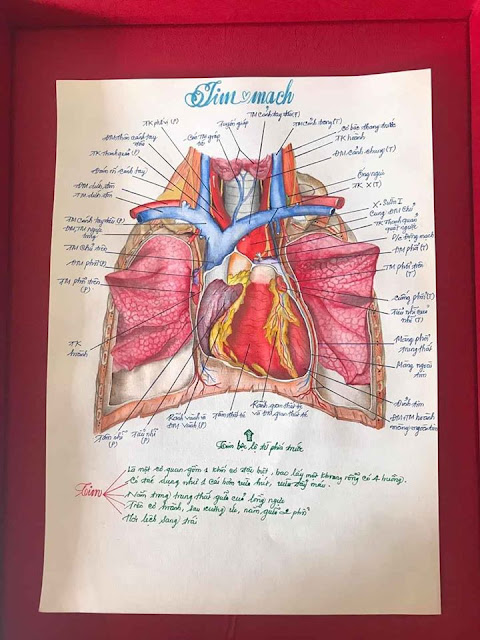 Tim mạch
TK phế vị (P)
ĐM thân cánh tay đầu
TK thanh quản (P)
ĐM dưới đòn
TM dưới đòn
TM cánh tay đầu (P)
ĐM, TM ngực trong
TM chủ trên
ĐM phổi (P)
TM phổi trên (P)
TK hoành
Tâm nhĩ (P)
Tiểu nhĩ (P)
Rãnh vành và ĐM vành (P)
Tâm thất (P)
Tuyến giáp
TM cánh tay đầu (T)
TM cảnh trong (T)
Cơ bậc thang trước
TK hoành
ĐM cảnh chung (T)
Ống ngực
TK X (T)
X. Sườn I
Cung ĐM chủ
TK thanh quản quặt ngược
D/c động mạch
ĐM phổi (T)
TM phổi trên (T)
Cuống phổi (T)
Tiểu nhĩ (T)
Màng phổi trung thất
Màng ngoài tim
Đỉnh tim
ĐM, TM hoành màng ngoài tim
Rãnh gian thất tr và ĐM gian thất tr
Toàn bộc lộ từ phía trước
Tim
Là một cơ quan gồm 1 khối cơ đặc biệt, bao lấy một khoang rỗng có 4 buồng.
Có tác dụng như 1 cái bơm vừa hút, vừa đẩy máu.
Nằm trong trung thất giữa của lồng ngực
Trên cơ hoành, sau xương ức, nằm giữa 2 phổi
Hơi lệch sang trái